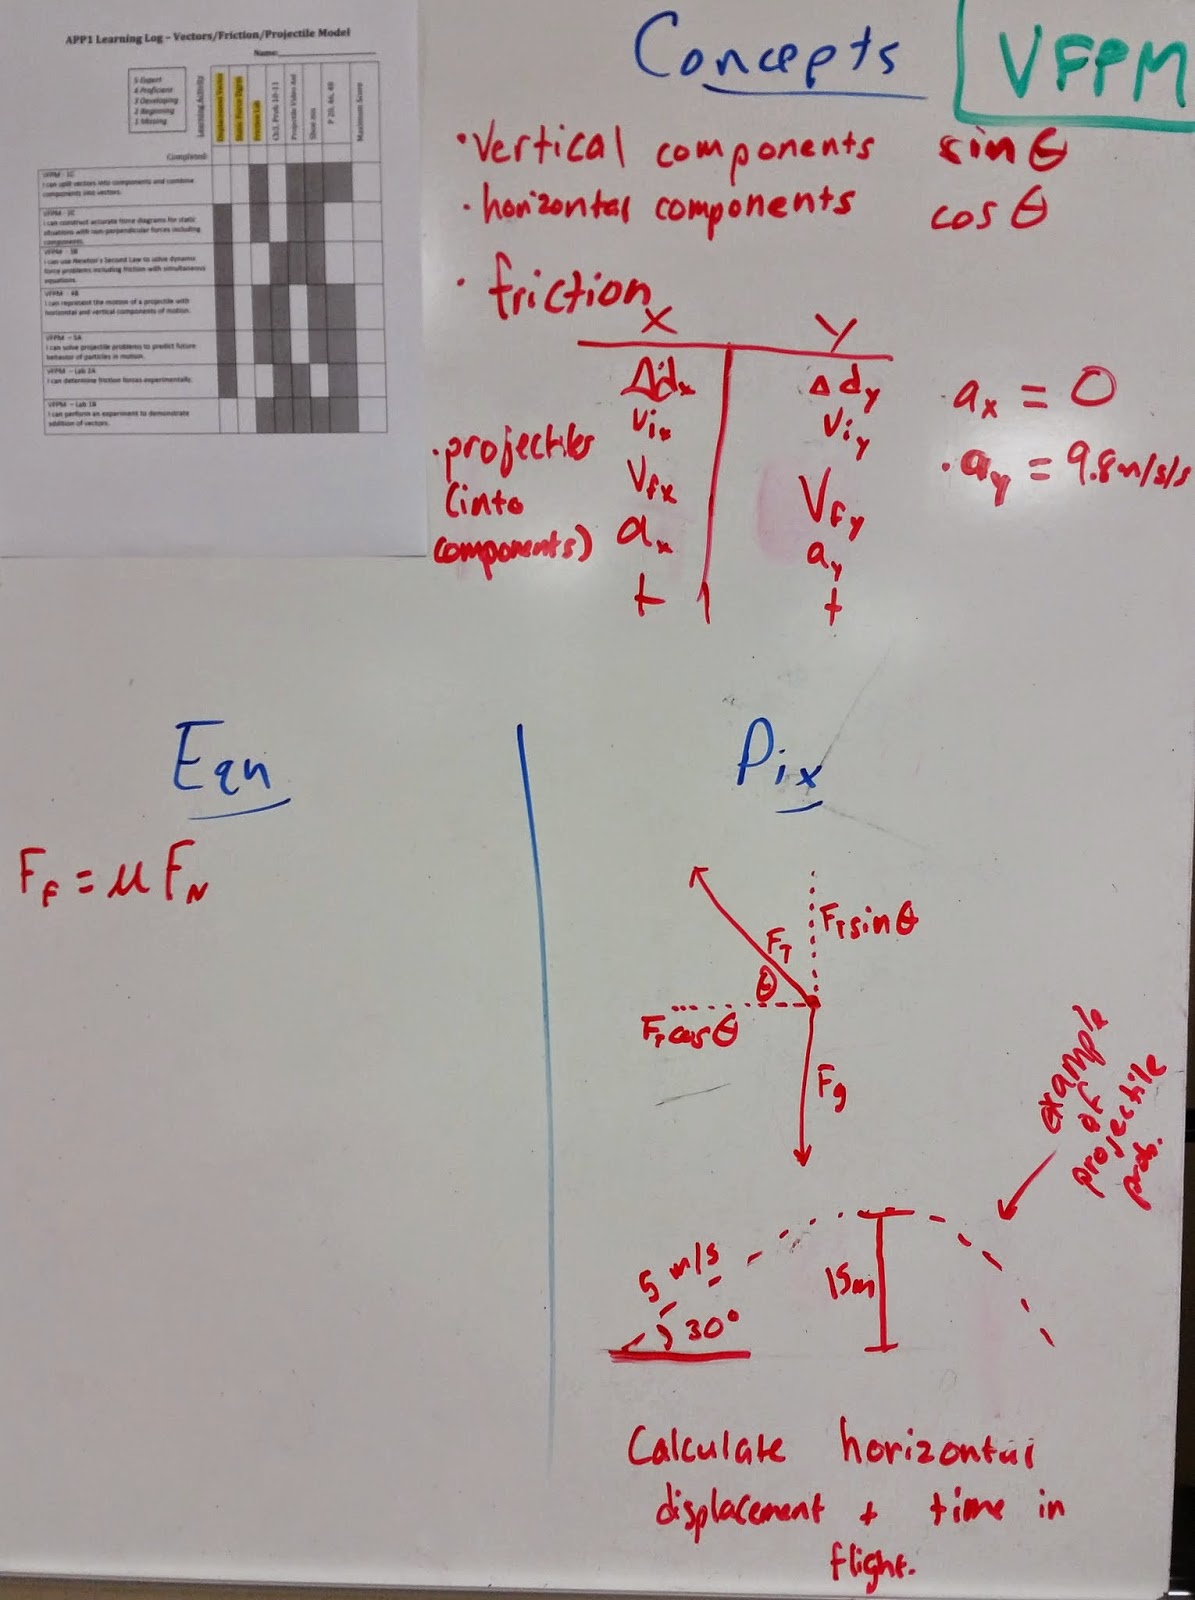 APP1 Learning Log – Vectors/Friction/Projectile Model
Name:
5 Expert
4 Proficient
3 Developing
2 Beginning
1 Missing
Learning Activity
Displacement Vector
Static Force Dgrm
Friction Lab
Ch3. Prob 10-11
Projectile Video Anl
Shoe mu
Maximum Score
Completed:
VFPM - 1C
I can split vectors into components and combine
components into vectors.
VFPM - 2C
I can construct accurate force diagrams for static
situations with non-perpendicular forces including
components.
VFPM - 3B
I can use Newton's Second Law to solve dynamic
force problems including friction with simultaneous
equations.
VFPM - 4B
I can represent the motion of a projectile with
horizontal and vertical components of motion.
VFPM - 5A
I can solve projectile problems to predict future
behavior of particles in motion.
VFPM - Lab 2A
I can determine friction forces experimentally.
VFPM - Lab 1B
I can perform an experiment to demonstrate
addition of vectors.
Concepts
VFPM
• Vertical components sin θ
• horizontal components cos θ
• friction
X Y
Δdx Δdy
vix viy
vfx vfy
ax ay
t t
• projectiles
(into
components)
• ax = 0
• ay = 9.8m/s/s
Eqn
FF = μ FN
Pix
FT sin θ
FT
θ
FT cos θ
Fg
example
of
projectile
prob.
5 m/s
30°
15m
Calculate horizontal
displacement + time in
flight.